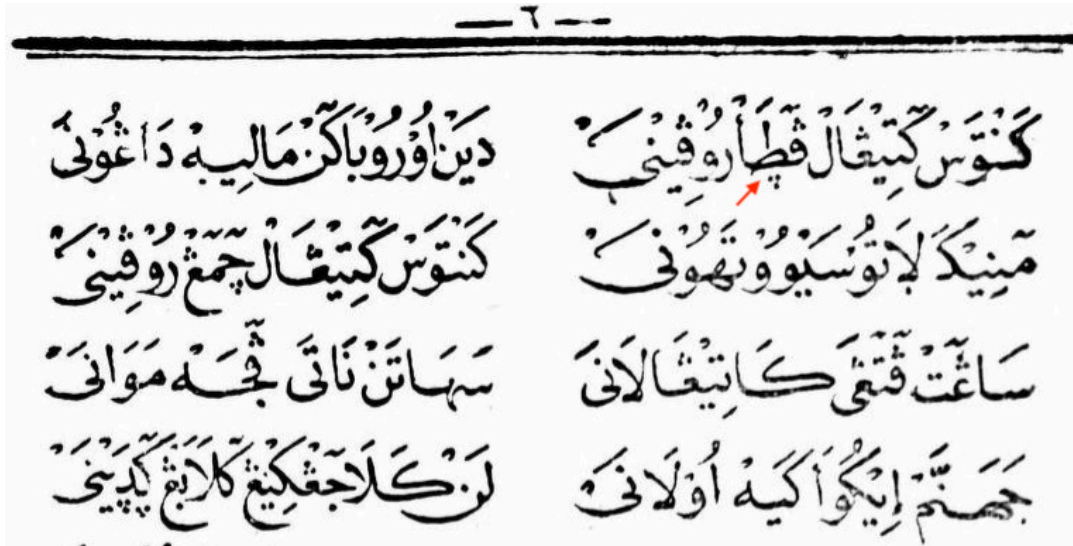 — ٦ —
كَنْتَوْسْ كَتِيْڠَالْ ڤٓࢌَأ رُوڤِيْنَيْ دَيْنْ اُوْرُوْبَاكٓنْ مَالِيـيـهْ دَاڠُوْنَيْ
مٓنِيْكَا لَاتُوْ سَيْوُوْ تَهُوْنَيْ كَنْتَوْسْ كَتِيْڠَالْ چٓمٓڠْ رُوْڤِيْنَيْ
سَاڠٓتْ ڤٓتٓڠَيْ كَاتِيْڠَالَانَيْ سَهَاتَنْ نَاتَيْ ڤٓجَهْ مَوَانَيْ
جَهَنَّمْ اِيْكُوْ أَكَيَهْ أُوْلَانَيْ لَنْ كَلَاجٓڠْكِيْڠْ كَلَابَڠْ كٓڊَيْنَيْ